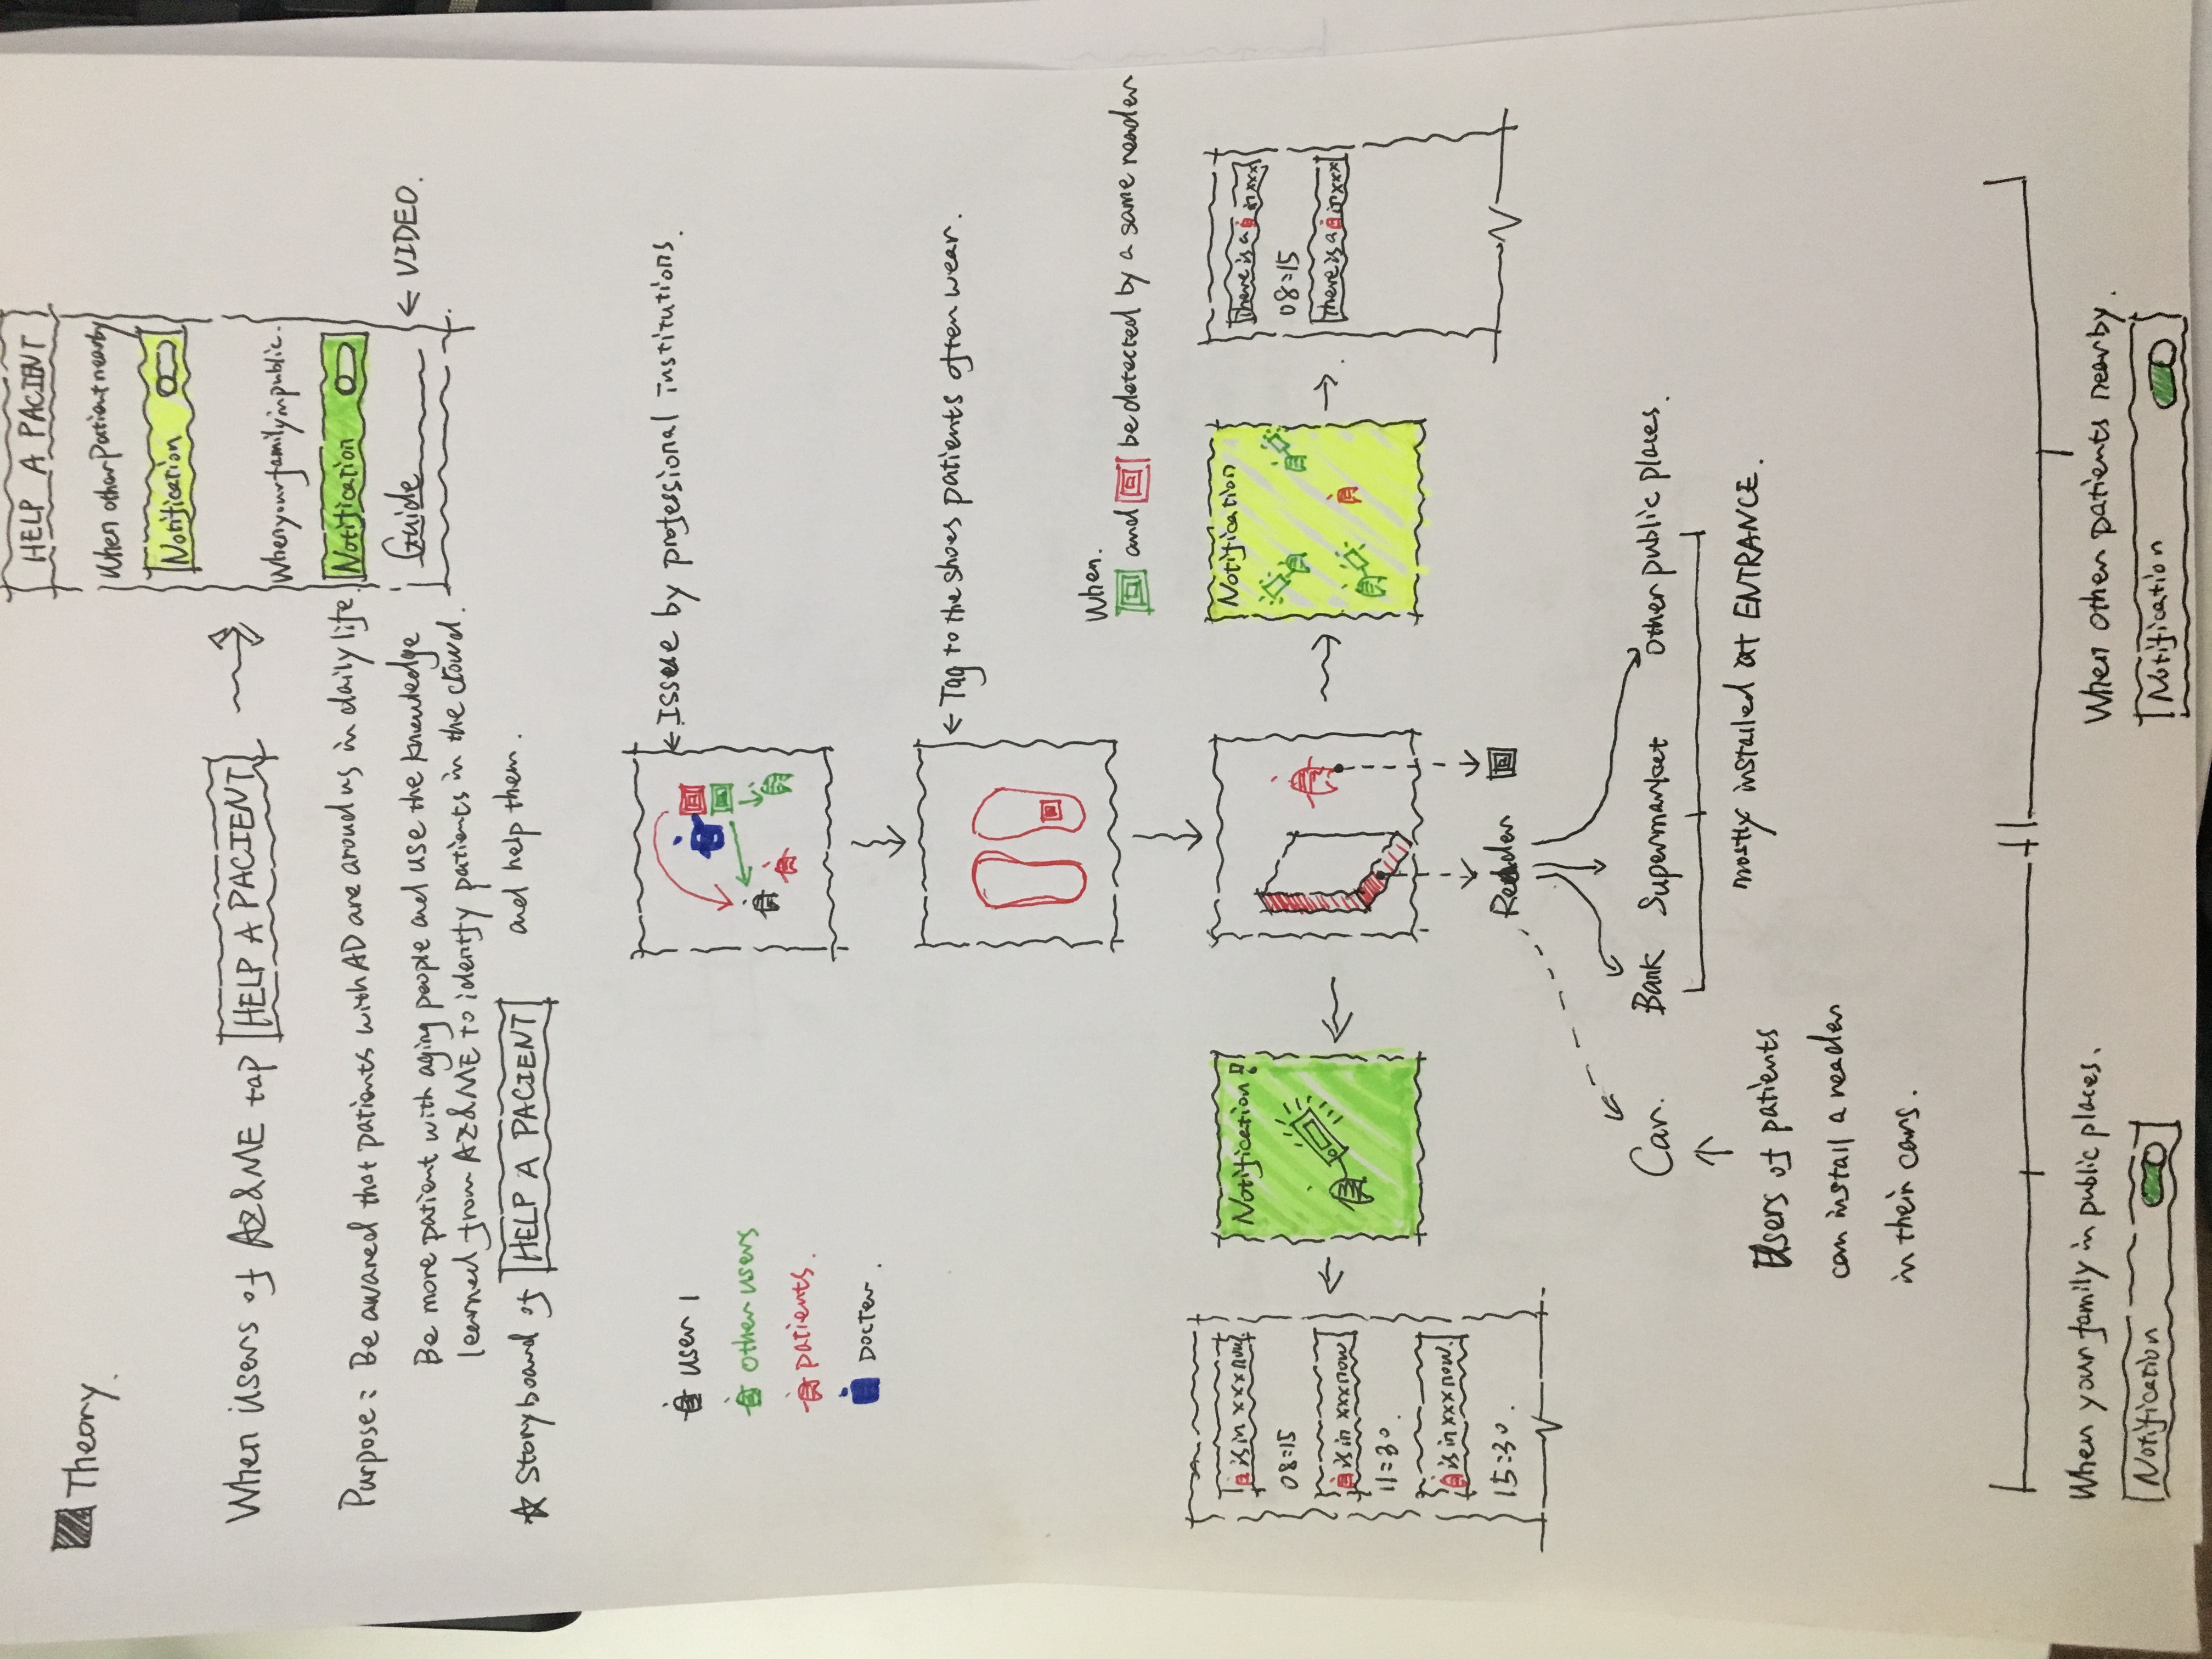 Theory.
HELP A PACIENT
When other patient nearby
Notification
When your family in public.
Notification
Guide
← VIDEO.
When users of AZ&ME tap HELP A PACIENT
Purpose: Be awared that patients with AD are aroud us in daily life.
Be more patient with aging people and use the knowledge
learned from AZ&ME to identify patients in the crowd.
and help them.
☆ Storyboard of HELP A PACIENT
user 1
other users
patients.
Docter.
← Issue by professional institutions.
← Tag to the shoes patients often wear.
When.
and be detected by a same reader
is in xxx now.
08:15
is in xxx now
11:30.
is in xxx now.
15:30.
Notification!
Notification
There is a in xxx
08:15
There is a in xxx
Reader
Car.
Bank
Supermarket
other public places.
mostly installed at ENTRANCE.
Users of patients
can install a reader
in their cars.
When your family in public places.
Notification
When other patients nearby.
Notification